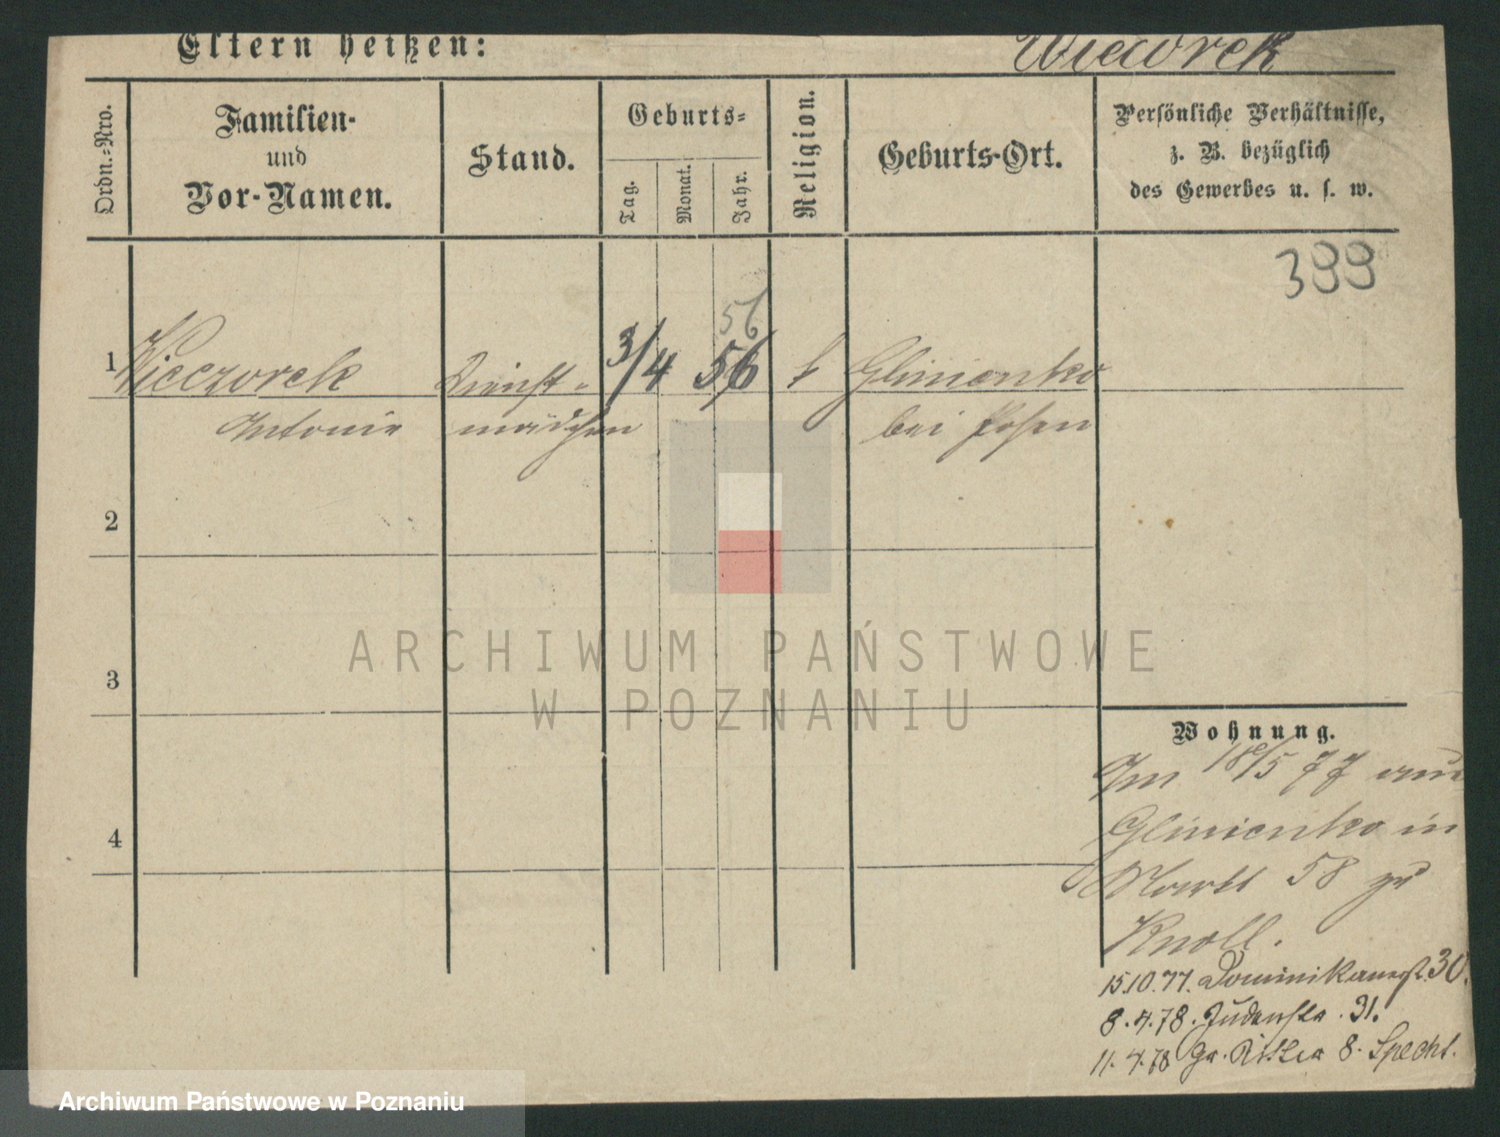 Eltern heißen:
Wieworek
Ordn.-Nro.
Familien-
und
Vor-Namen.
Stand.
Geburts-
Tag.
Monat.
Jahr.
Religion.
Geburts-Ort.
Persönliche Verhältnisse,
z. B. bezüglich
des Gewerbes u. s. w.
399
56
1 Wieczorek Dienst- 3/4 56 k Glinienko
Antonie mädchen bei Posen
2
3
4
Wohnung.
Am 18/5 77 aus
Glinienko in
Markt 58 zu
Knoll.
15.10.77. Dominikanerst. 30.
8.4.78. Judenstr. 31.
11.4.78 Gr. Ritter 8. Specht.
ARCHIWUM PAŃSTWOWE
W POZNANIU
Archiwum Państwowe w Poznaniu